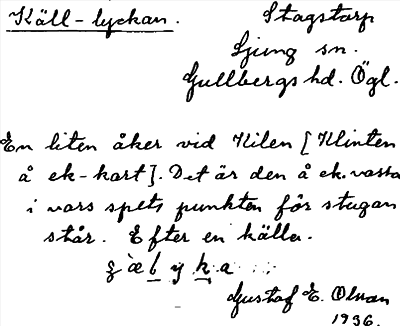 Käll-lyckan.
Stagstorp
Ljung sn.
Gullbergs hd. Ögl.
En liten åker vid Kilen [Klinten
å ek-kart]. Det är den å ek. vasta
i vars spets punkten för stugan
står. Efter en källa.
Gustaf E. Olson
1936.